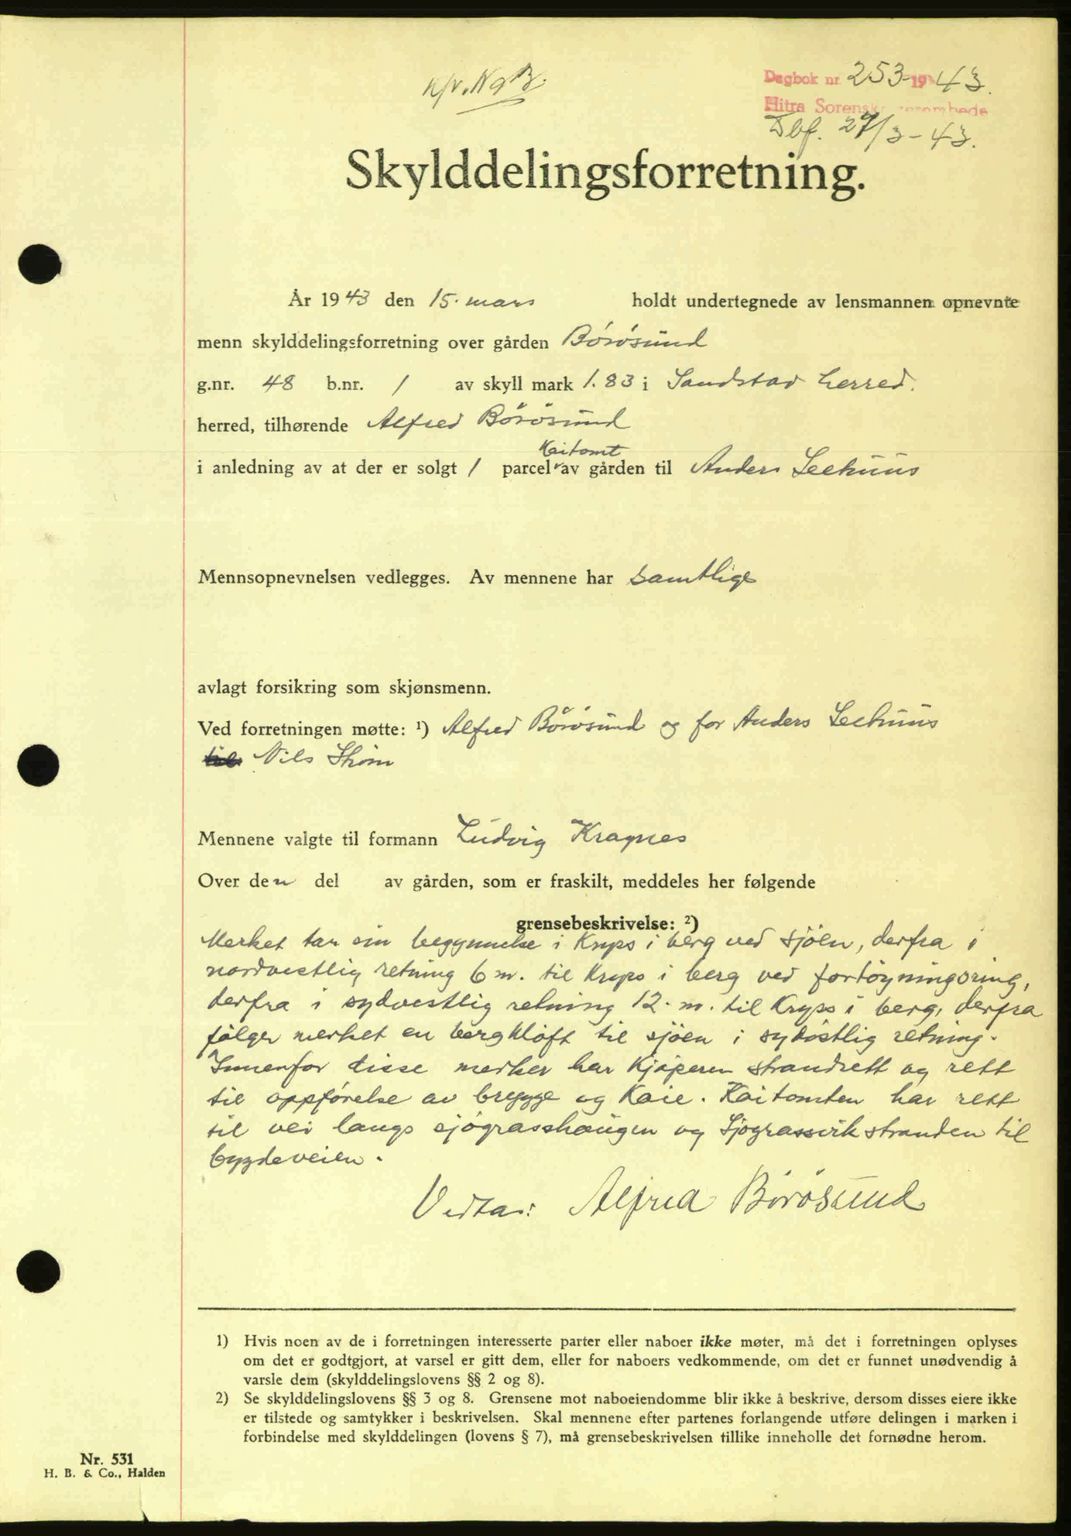 Dagbok nr. 253-1943.
Hitra Sorenskr
Dbf. 27/3-43.
Skylddelingsforretning.
År 1943 den 15. mars holdt undertegnede av lensmannen opnevnte
menn skylddelingsforretning over gården Börösund
g.nr. 48 b.nr. 1 av skyll mark 1.83 i Sandstad herred.
herred, tilhørende Alfred Börösund
Kaitomt
i anledning av at der er solgt 1 parcel av gården til Anders Leehuus
Mennsopnevnelsen vedlegges. Av mennene har samtlige
avlagt forsikring som skjønsmenn.
Ved forretningen møtte: 1) Alfred Börösund og for Anders Leehuus
Nils Strøm
Mennene valgte til formann Ludvig Kragnes
Over den del av gården, som er fraskilt, meddeles her følgende
grensebeskrivelse: 2)
Merket tar sin begynnelse i Kryss i berg ved sjöen, derfra i
nordvestlig retning 6 m. til Kryss i berg ved fortöyningsring,
derfra i sydvestlig retning 12. m. til Kryss i berg, derfra
fölger merket en bergklöft til sjöen i sydöstlig retning.
Innenfor disse merker har Kjöperen strandrett og rett
til oppförelse av brygge og Kaie. Kaitomten har rett
til vei langs sjögrasshaugen og Sjögrassvikstranden til
bygdeveien.
Vedtas: Alfred Börösund
1) Hvis noen av de i forretningen interesserte parter eller naboer ikke møter, må det i forretningen oplyses
om det er godtgjort, at varsel er gitt dem, eller for naboers vedkommende, om det er funnet unødvendig å
varsle dem (skylddelingslovens §§ 2 og 8).
2) Se skylddelingslovens §§ 3 og 8. Grensene mot naboeiendomme blir ikke å beskrive, dersom disses eiere ikke
er tilstede og samtykker i beskrivelsen. Skal mennene efter partenes forlangende utføre delingen i marken i
forbindelse med skylddelingen (lovens § 7), må grensebeskrivelsen tillike inneholle det fornødne herom.
Nr. 531
H. B. & Co., Halden